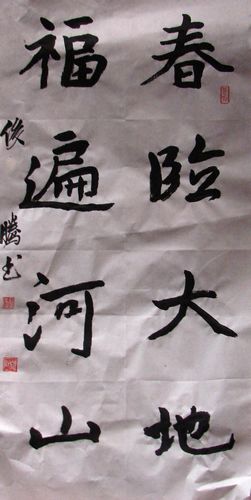 春临大地
福遍河山
俊腾书